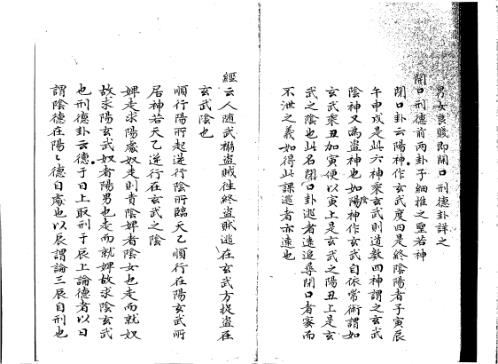 男女良賤即閉口刑德卦詳之
閉口刑德前兩卦子細推之聖若神
閉口卦云陽神作玄武度四是終陰陽者子寅辰
午申戌是此六神乘玄武則逆數四神謂之玄武
陰神又爲盜神也如陽神作玄武自依常術謂如
玄武乘丑加寅便以寅上是玄武之陽丑上是玄
武之陰也此名閉口卦逃者速追尋閉口者密而
不泄之義如得此課逃者亦速也
經云人隨武檷盜賊往終盜賊逃在玄武方捉盜在
玄武陰也
順行陽所起逆行陰所臨天乙順行在陽玄武所
居神若天乙逆行在玄武之陰
婢走求陽處奴走則責陰婢者陰女也走而就奴
故求陽玄武奴者陽男也走而就婢故求陰玄武
也刑德卦云德于日上取刑于辰上論德者以日
謂陰德在陽々德自處也以辰謂論三辰自刑也